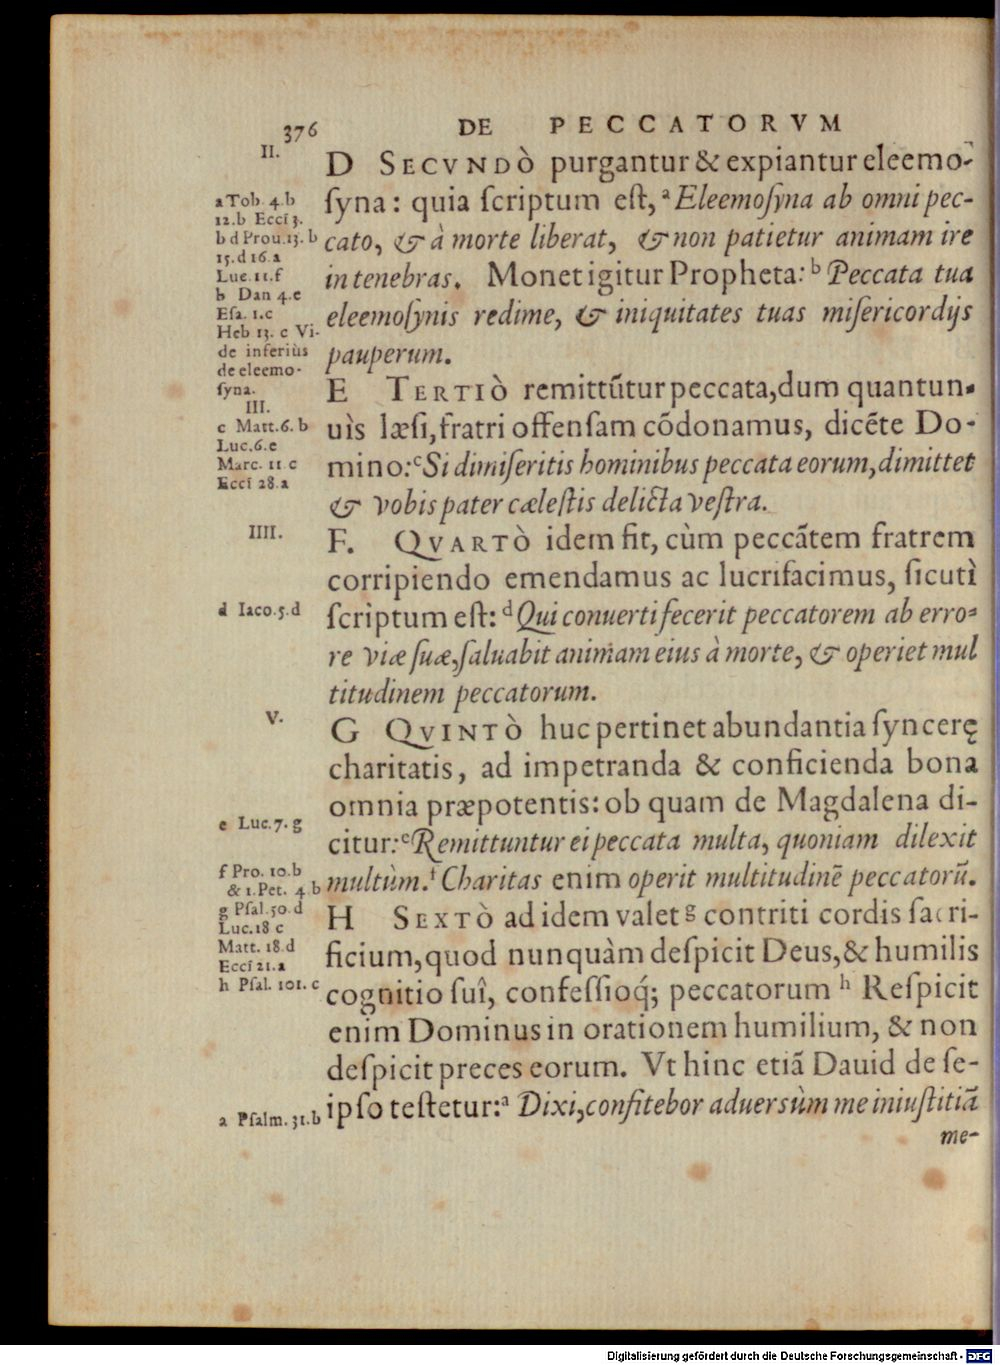 376 DE PECCATORVM
II.
D SECVNDÒ purgantur & expiantur eleemo-
ſyna: quia ſcriptum eſt, ᵃ Eleemoſyna ab omni pec-
cato, & à morte liberat, & non patietur animam ire
in tenebras. Monet igitur Propheta: ᵇ Peccata tua
eleemoſynis redime, & iniquitates tuas miſericordijs
pauperum.
E TERTIÒ remittũtur peccata, dum quantun-
uìs læſi, fratri offenſam cõdonamus, dicẽte Do-
mino: ᶜ Si dimiſeritis hominibus peccata eorum, dimittet
& vobis pater cæleſtis delicta veſtra.
F. QVARTÒ idem fit, cùm peccãtem fratrem
corripiendo emendamus ac lucrifacimus, ſicutì
ſcriptum eſt: ᵈ Qui conuerti fecerit peccatorem ab erro-
re viæ ſuæ, ſaluabit animam eius à morte, & operiet mul
titudinem peccatorum.
G QVINTÒ huc pertinet abundantia ſyncerę
charitatis, ad impetranda & conficienda bona
omnia præpotentis: ob quam de Magdalena di-
citur: ᵉ Remittuntur ei peccata multa, quoniam dilexit
multùm. ᶠ Charitas enim operit multitudinẽ peccatorũ.
H SEXTÒ ad idem valet ᵍ contriti cordis ſacri-
ficium, quod nunquàm deſpicit Deus, & humilis
cognitio ſuî, confeſſioq́; peccatorum ʰ Reſpicit
enim Dominus in orationem humilium, & non
deſpicit preces eorum. Vt hinc etiã Dauid de ſe-
ipſo teſtetur: ᵃ Dixi, confitebor aduersùm me iniuſtitiã
me-
a Tob. 4.b
12.b Eccſ 3.
b d Prou.13. b
15.d 16.a
Luc.11.f
b Dan 4.e
Eſa. 1.c
Heb 13. c Vi-
de inferiùs
de eleemo-
ſyna.
III.
c Matt.6. b
Luc.6.e
Marc. 11 c
Eccſ 28.a
IIII.
d Iaco.5.d
V.
e Luc.7. g
f Pro. 10.b
& 1.Pet. 4 b
g Pſal.50.d
Luc.18 c
Matt. 18 d
Eccſ 21.a
h Pſal. 101. c
a Pſalm. 31.b
Digitalisierung gefördert durch die Deutsche Forschungsgemeinschaft - DFG